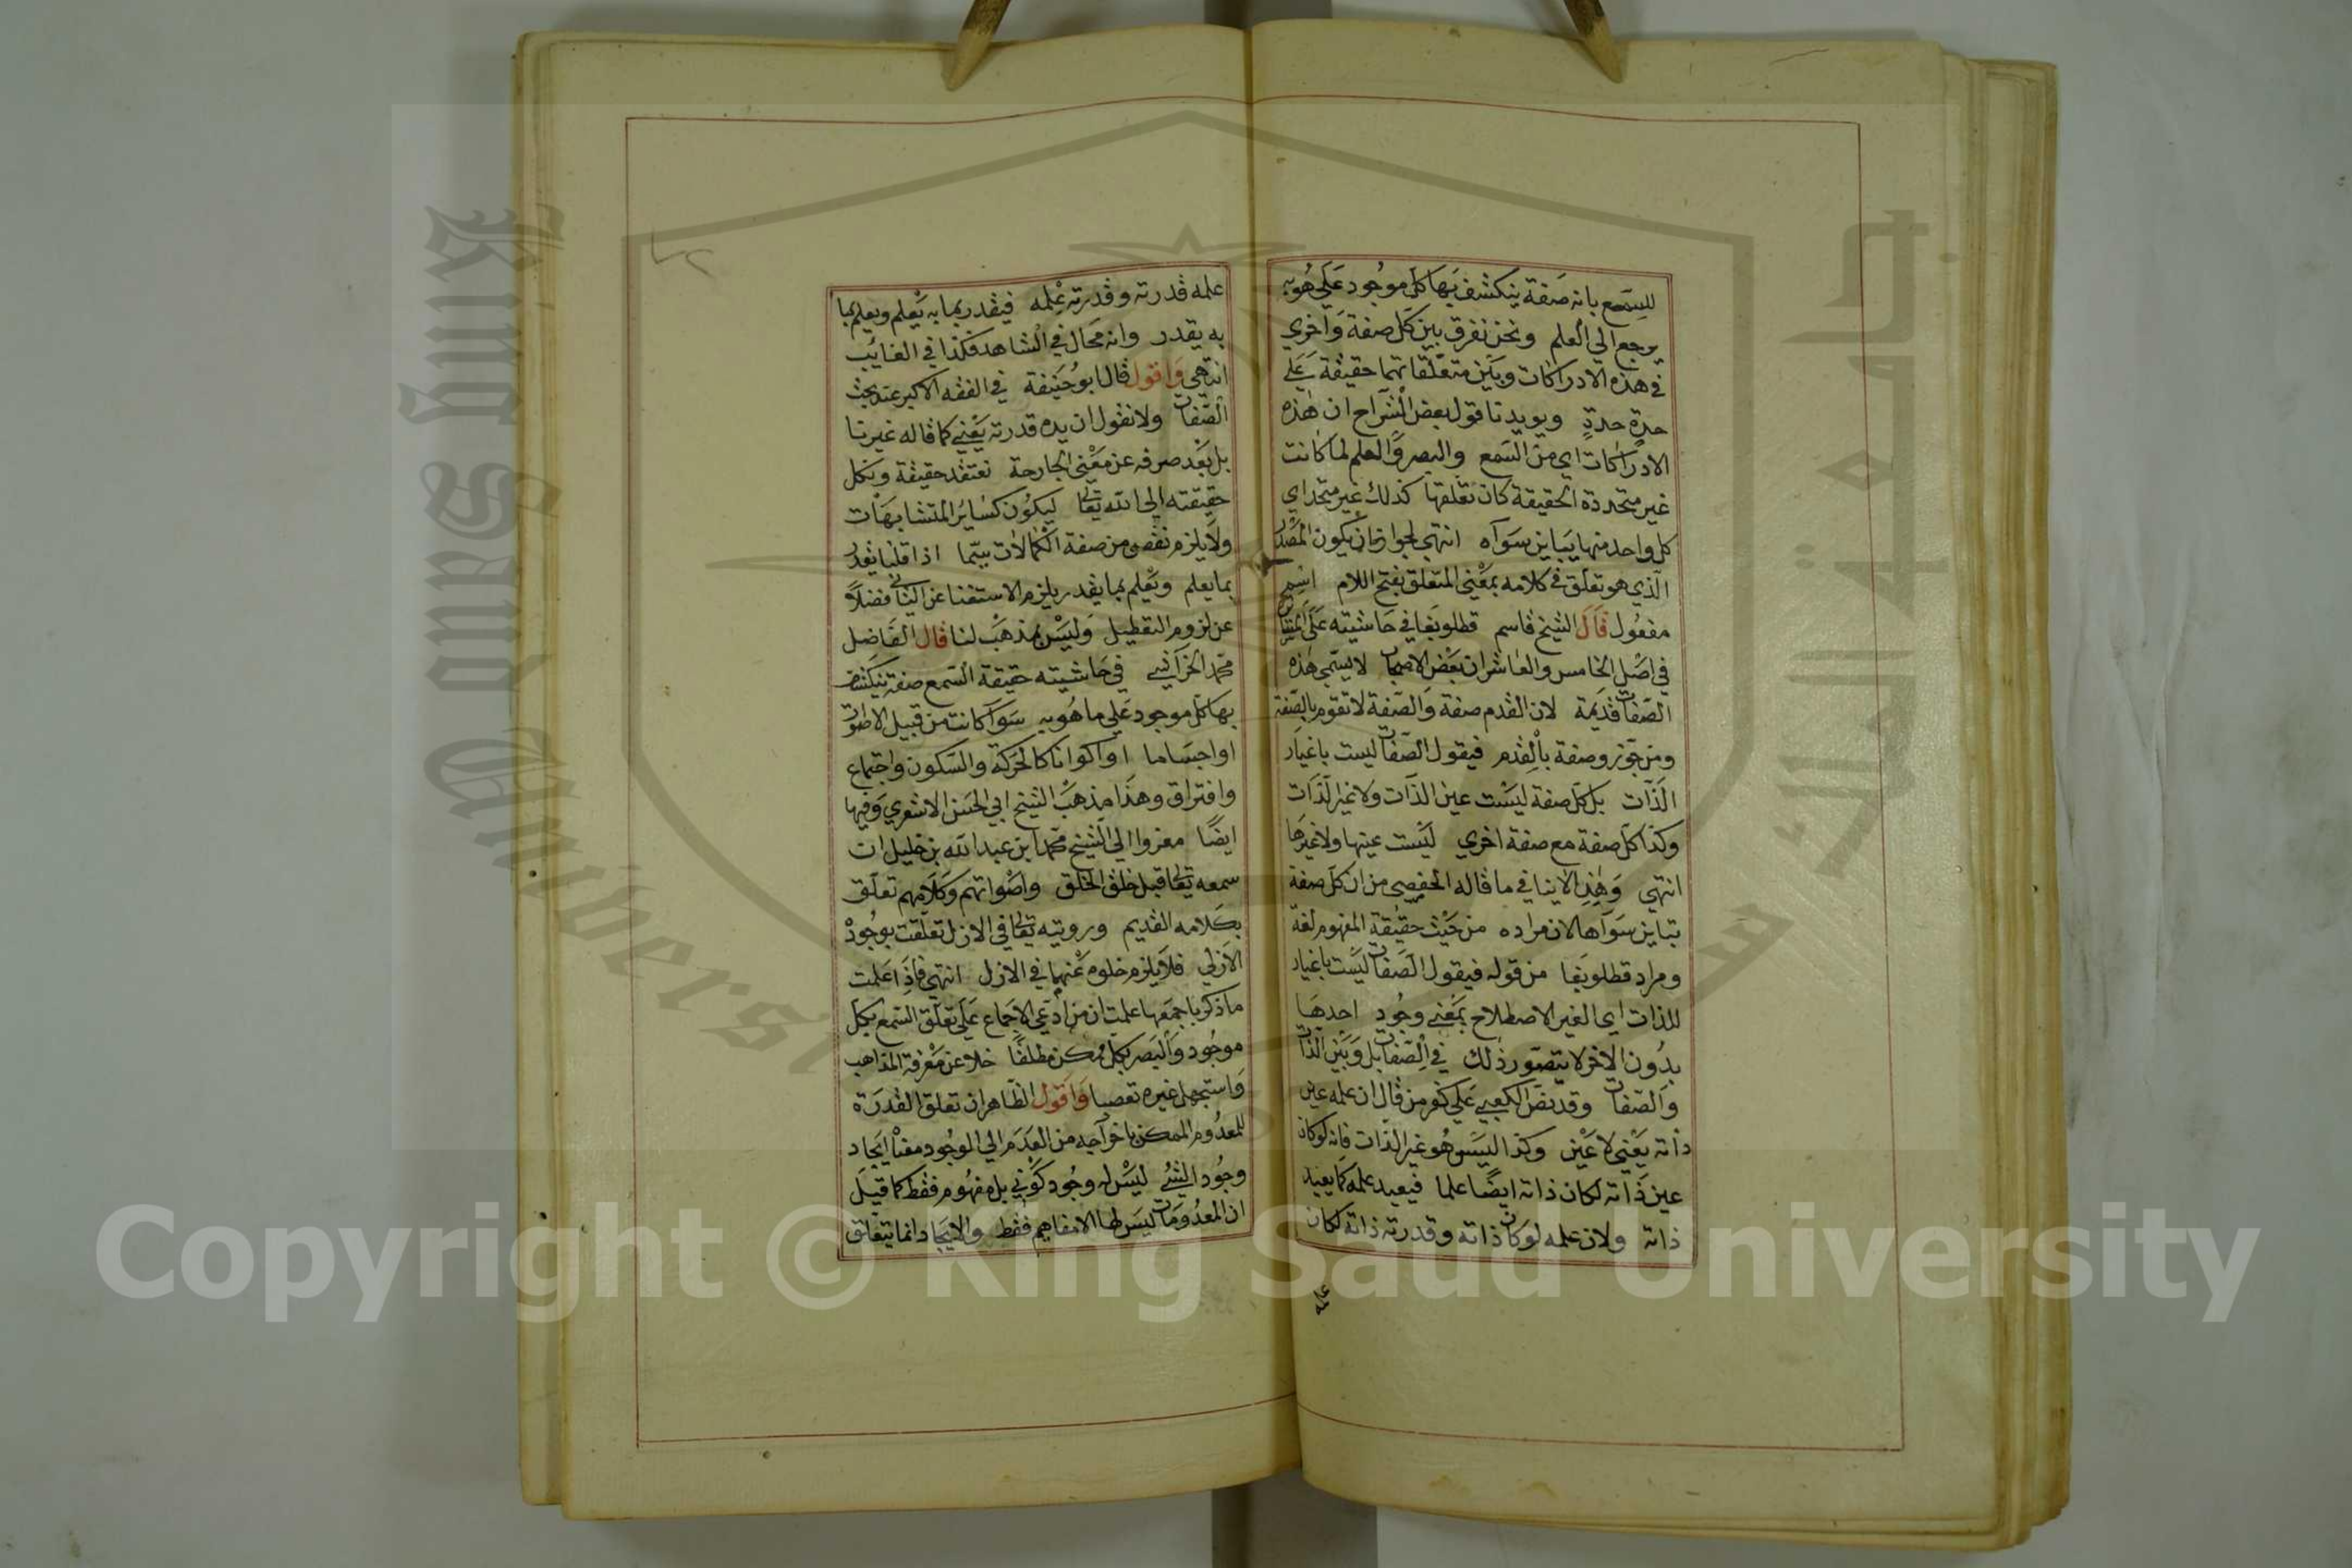 للسمع بانه صفة ينكشف بها كل موجود علي هو به
يرجع الي العلم ونحن نفرق بين كل صفة واخري
في هذه الادراكات وبين متعلقاتهما حقيقة علي
حدة حدة ويويدنا قول بعض الشراح ان هذه
الادراكات اي من السمع والبصر والعلم لما كانت
غير متحددة الحقيقة كان تعلقها كذلك غير متحد اي
كل واحد منها يباين سواه انتهي لجواز ان يكون المصدر
الذي هو تعلق في كلامه بمعني المتعلق بفتح اللام اسم
مفعول قال الشيخ قاسم قطلوبغا في حاشيته علي
في اصل الخامس والعاشر ان بعض الاصحاب لا يسمي هذه
الصفات قديمة لان القدم صفة والصفة لا تقوم بالصفة
ومن جوز وصفة بالقدم فيقول الصفات ليست باغيار
الذات بل كل صفة ليست عين الذات ولا غير الذات
وكذا كل صفة مع صفة اخري ليست عينها ولا غيرها
انتهي وهذا لا ينافي ما قاله الحفصي من ان كل صفة
تباين سواها لان مراده من حيث حقيقة المفهوم لغة
ومراد قطلوبغا من قوله فيقول الصفات ليست باغيار
للذات اي الغير الاصطلاح بمعني وجود احدها
بدون الاخر لا يتصور ذلك في الصفات بل وبين الذات
والصفات وقد نص الكعبي علي كفر من قال ان علمه عين
ذاته يعني لا عين وكذا ليس هو غير الذات فانه لو كان
عين ذاته لكان ذاته ايضا علما فيعبد علمه كما يعبد
ذاته ولان علمه لو كان ذاته وقدرته ذاته لكان
علمه
علمه قدرته وقدرته علمه فيقدر بما به يعلم ويعلم بما
به يقدر وانه محال في الشاهد فكذا في الغايب
انتهي واقول قال ابو حنيفة في الفقه الاكبر عند بحث
الصفات ولا نقول ان يده قدرته يعني كما قاله غيرنا
بل بعد صرفه عن معني الجارحة نعتقد حقيقة ونكل
حقيقته الي الله تعالي ليكون كساير المتشابهات
ولا يلزم نقص من صفة الكمالات بيتما اذا قلنا يقدر
بما يعلم ويعلم بما يقدر يلزم الاستغنا عن الثاني فضلا
عن لزوم التعطيل وليس بمذهب لنا قال الفاضل
محمد الخراشي في حاشيته حقيقة السمع صفة ينكشف
بها كل موجود علي ما هو به سوا كانت من قبيل الاصوات
او اجساما او اكوانا كالحركة والسكون واجتماع
وافتراق وهذا مذهب الشيخ ابي الحسن الاشعري وفيها
ايضا معزوا الي الشيخ محمد ابن عبد الله بن خليل ان
سمعه تعالي قبل خلق الخلق واصواتهم وكلامهم تعلق
بكلامه القديم ورويته تعالي في الازل تعلقت بوجود
الازلي فلا يلزم خلوه عنهما في الازل انتهي فاذا علمت
ما ذكر باجمعها علمت ان من ادعي الاجماع علي تعلق السمع بكل
موجود والبصر بكل ممكن مطلقا خلا عن معرفة المذاهب
واستجهل غيره تعصبا واقول الظاهر ان تعلق القدرة
للمعدوم الممكن باخراجه من العدم الي الوجود ايجاد
وجود الشي ليس له وجود كوني بل مفهوم فقط كما قيل
ان المعدومات ليس لها الا مفاهيم فقط والايجاد انما يتعلق
King Saud University
Copyright © King Saud University